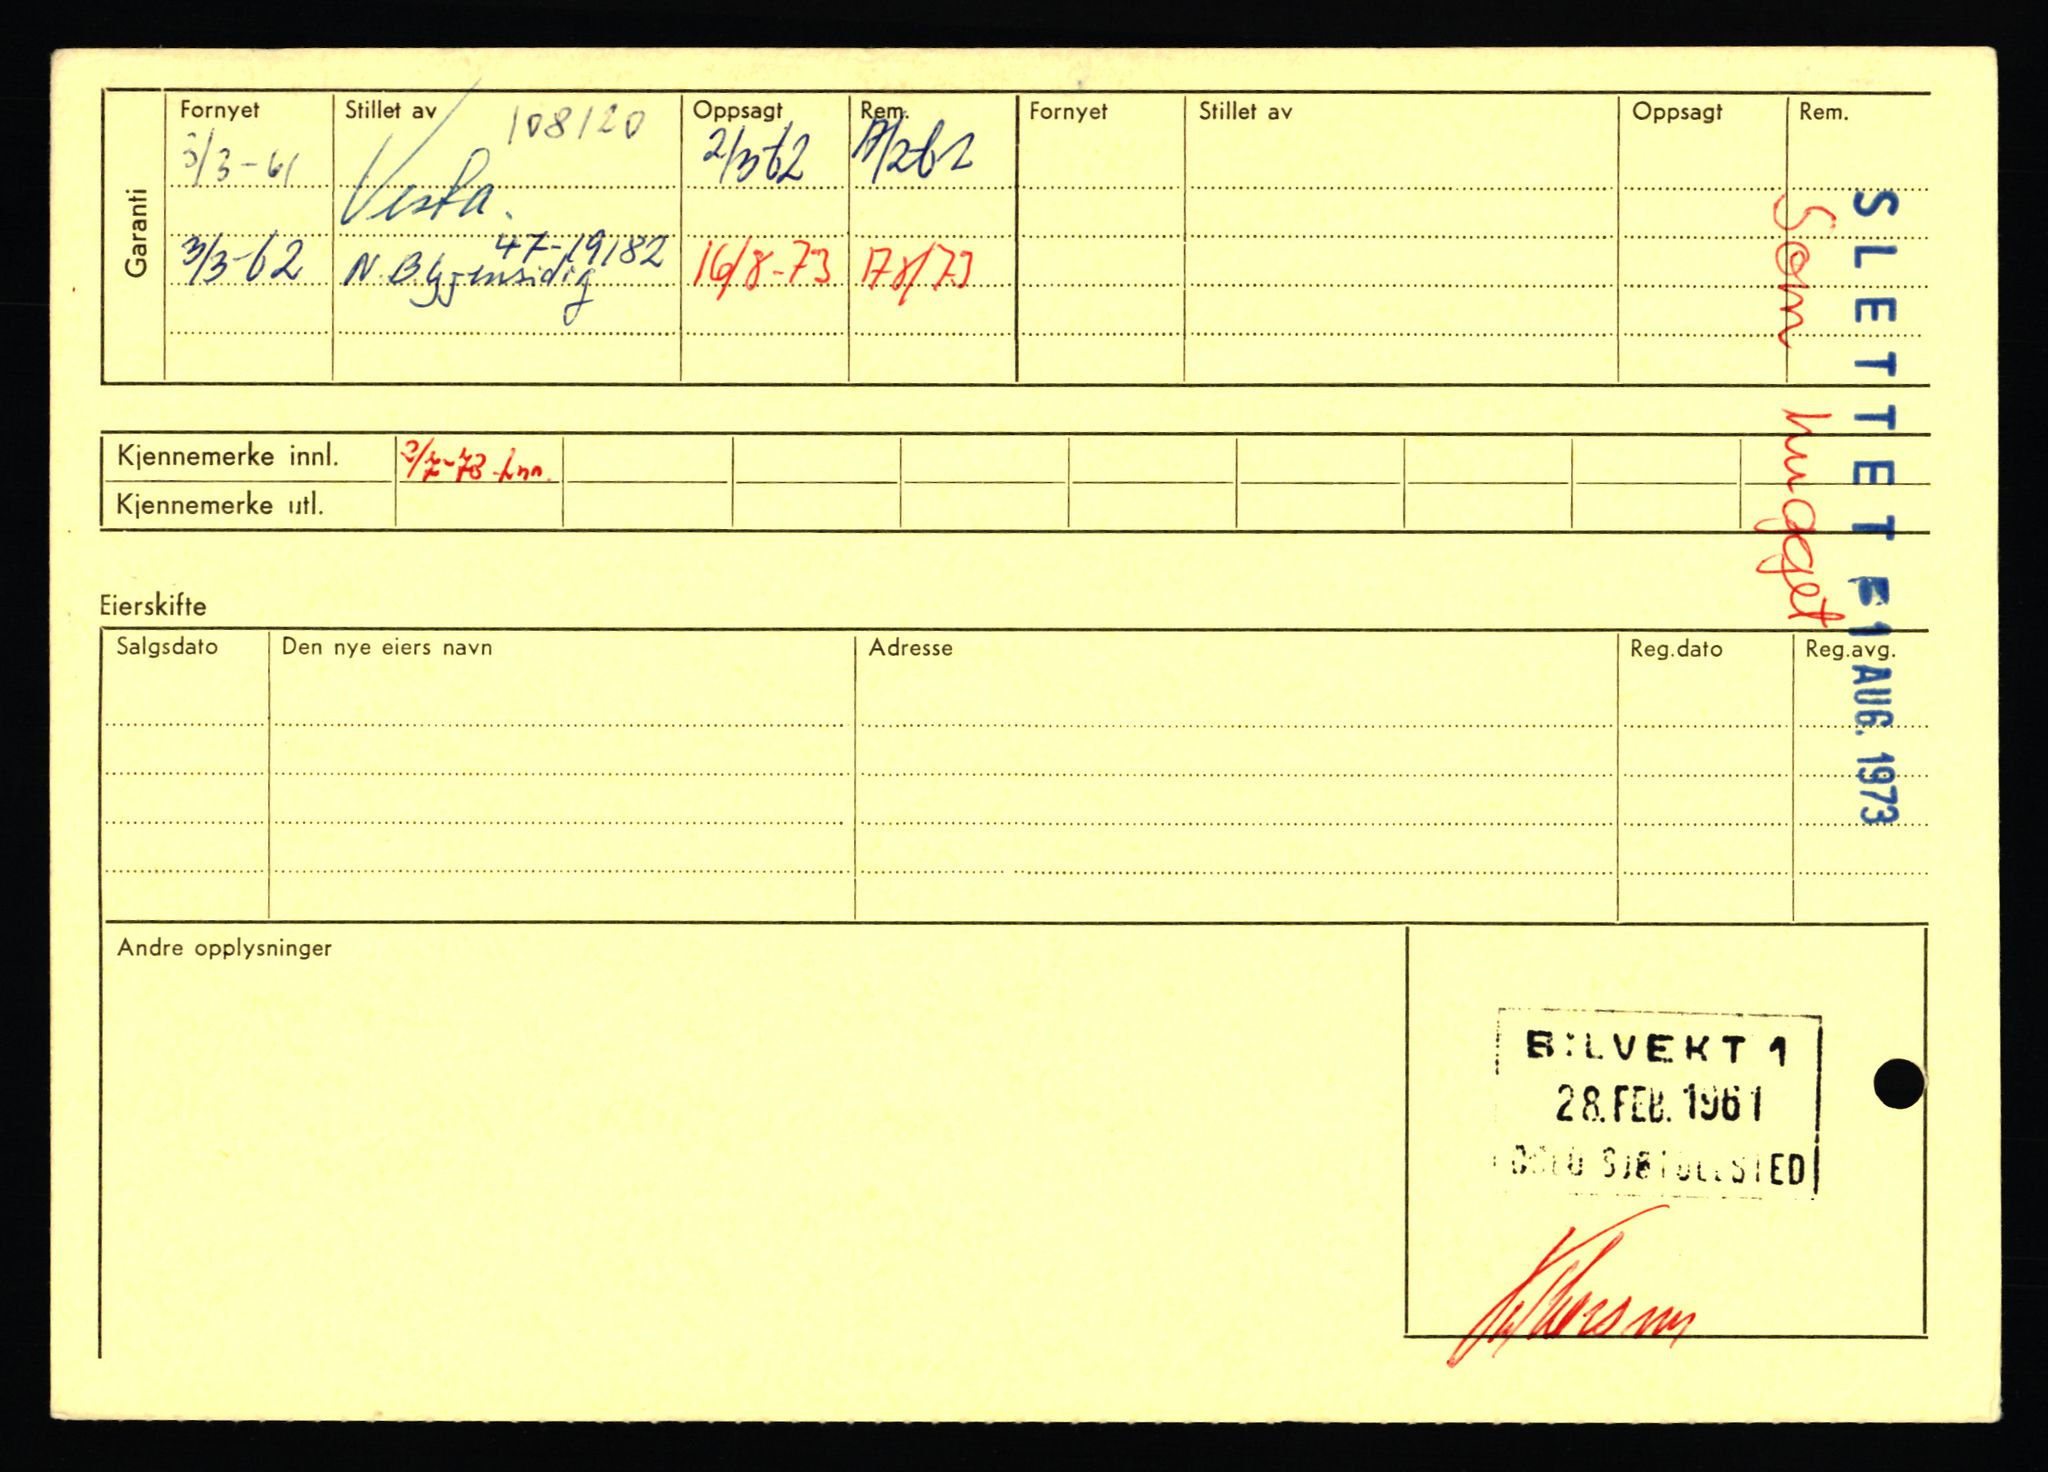 Garanti
Fornyet Stillet av Oppsagt Rem. Fornyet Stillet av Oppsagt Rem.
3/3-61 108120 2/3-62
Vesta.
3/3-62 N. B. Gjensidig 47-19182 16/8-73 17 8/73
Kjennemerke innl.
Kjennemerke utl.
Eierskifte
Salgsdato Den nye eiers navn Adresse Reg.dato Reg.avg.
Andre opplysninger
BILVEKT 1
28. FEB. 1961
OSLO SJØTOLLSTED
SLETTET 1 AUG. 1973
Som hugget